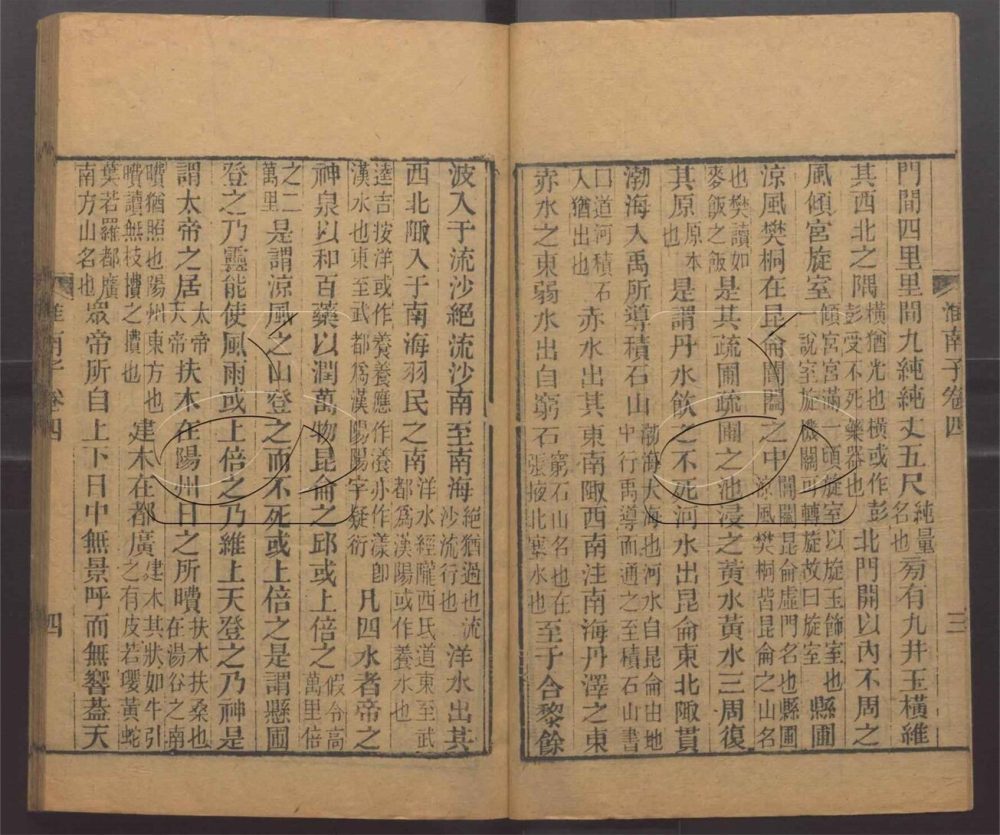 門間四里里間九純純丈五尺純量名也旁有九井玉橫維
其西北之隅橫猶光也橫或作彭彭受不死藥器也北門開以內不周之
風傾宮旋室傾宮宮滿一頃旋室以旋玉飾室也一說室旋機關可轉旋故曰旋室縣圃
涼風樊桐在昆侖閶闔之中閶闔昆侖虛門名也縣圃涼風樊桐皆昆侖之山名
也樊讀如麥飯之飯是其疏圃疏圃之池浸之黃水黃水三周復
其原原本也是謂丹水飲之不死河水出昆侖東北陬貫
渤海入禹所導積石山渤海大海也河水自昆侖由地中行禹導而通之至積石山書
曰道河積石入猶出也赤水出其東南陬西南注南海丹澤之東
赤水之東弱水出自窮石窮石山名也在張掖北塞水也至于合黎餘
淮南子卷四
三
波入于流沙絕流沙南至南海絕猶過也流沙流行也洋水出其
西北陬入于南海羽民之南洋水經隴西氐道東至武都為漢陽或作養水也
逵吉按洋或作養養應作瀁亦作漾卽漢水也東至武都為漢陽陽字疑衍凡四水者帝之
神泉以和百藥以潤萬物昆侖之邱或上倍之假令高萬里倍
之二萬里是謂涼風之山登之而不死或上倍之是謂懸圃
登之乃靈能使風雨或上倍之乃維上天登之乃神是
謂太帝之居太帝天帝扶木在陽州日之所曊扶木扶桑也在湯谷之南
曊猶照也陽州東方也曊讀無枝攢之攢也建木在都廣建木其狀如牛引之有皮若瓔黃蛇
葉若羅都廣南方山名也眾帝所自上下日中無景呼而無響蓋天
淮南子卷四
四